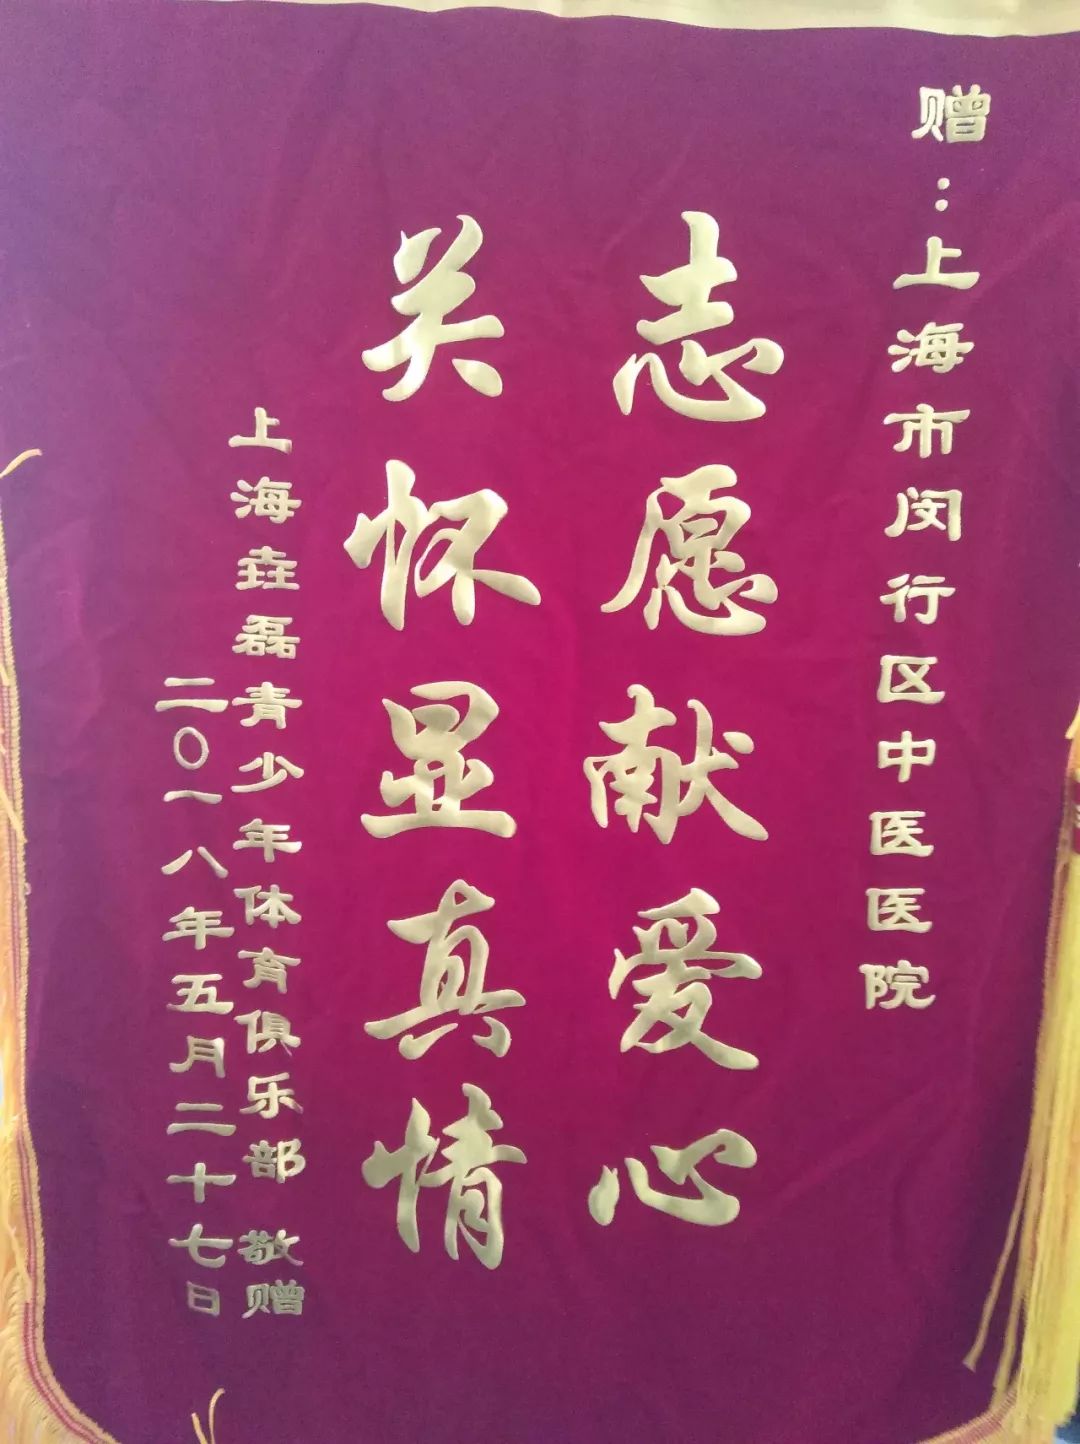 赠：上海市闵行区中医医院
志愿献爱心
关怀显真情
上海垚磊青少年体育俱乐部 敬赠
二〇一八年五月二十七日